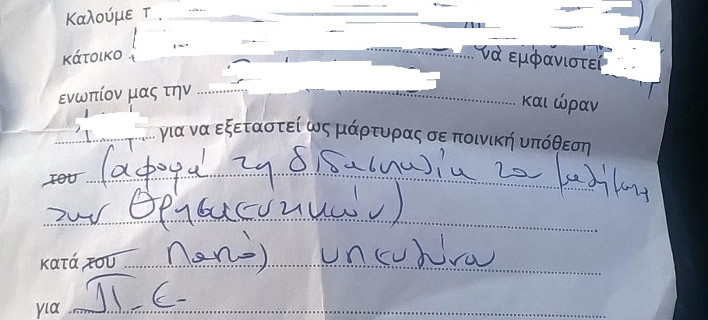 Καλούμε τ
κάτοικο να εμφανιστεί
ενωπίον μας την ........ και ώραν
........ για να εξεταστεί ως μάρτυρας σε ποινική υπόθεση
του (αφορά τη διδασκαλία του μαθήματος
των Θρησκευτικών)
κατά του Παντός υπευθύνου
για Π.Ε.